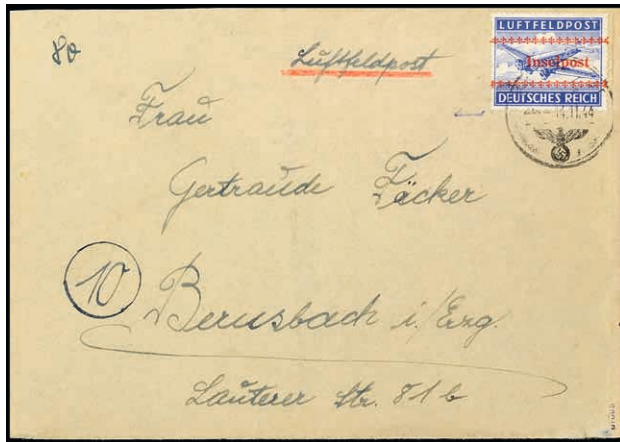 80
Luftfeldpost
LUFTFELDPOST
Inselpost
DEUTSCHES REICH
14.11.44
Frau
Gertraude Fäcker
10
Bernsbach i/Erzg.
Lauterer Str. 81b